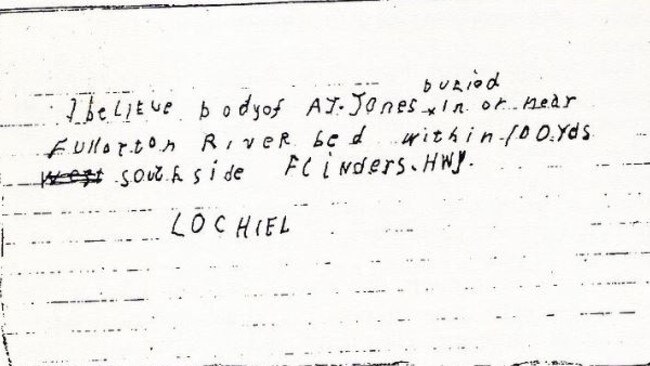 I believe body of AJ. Jones buried x in or near
Fullarton River bed within 100 yds
west south side Flinders. HWY.
LOCHIEL